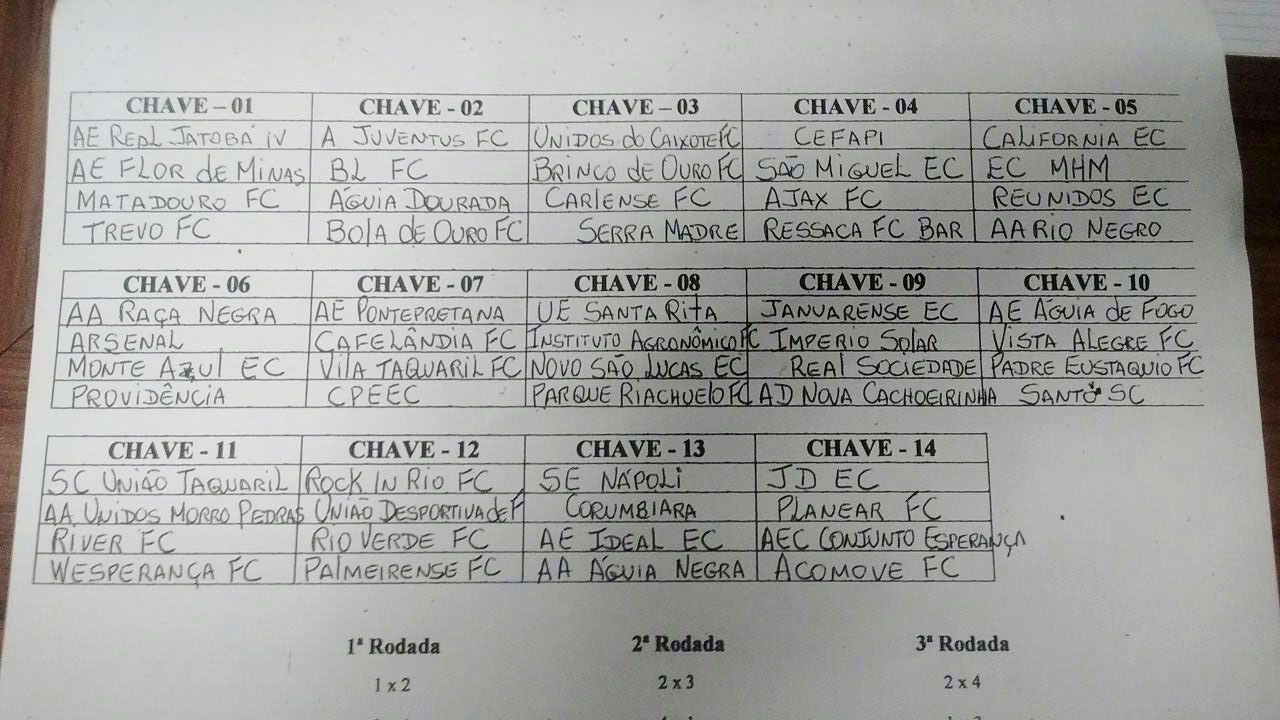 CHAVE – 01 CHAVE - 02 CHAVE – 03 CHAVE - 04 CHAVE - 05
AE REAL JATOBÁ IV A JUVENTUS FC UNIDOS do CAIXOTE FC CEFAPI CALIFORNIA EC
AE FLOR de MINAS BL FC BRINCO de OURO FC SÃO MIGUEL EC EC MHM
MATADOURO FC ÁGUIA DOURADA CARLENSE FC AJAX FC REUNIDOS EC
TREVO FC BOLA de OURO FC SERRA MADRE RESSACA FC BAR AA RIO NEGRO
CHAVE - 06 CHAVE - 07 CHAVE - 08 CHAVE - 09 CHAVE - 10
AA RAÇA NEGRA AE PONTEPRETANA UE SANTA RITA JANUARENSE EC AE ÁGUIA de FOGO
ARSENAL CAFELÂNDIA FC INSTITUTO AGRONÔMICO FC IMPERIO SOLAR VISTA ALEGRE FC
MONTE AZUL EC VILA TAQUARIL FC NOVO SÃO LUCAS EC REAL SOCIEDADE PADRE EUSTAQUIO FC
PROVIDÊNCIA CPEEC PARQUE RIACHUELO FC AD NOVA CACHOEIRINHA SANTOS SC
CHAVE - 11 CHAVE - 12 CHAVE - 13 CHAVE - 14
SC UNIÃO TAQUARIL ROCK IN RIO FC SE NÁPOLI JD EC
AA UNIDOS MORRO PEDRAS UNIÃO DESPORTIVA de F CORUMBIARA PLANEAR FC
RIVER FC RIO VERDE FC AE IDEAL EC AEC CONJUNTO ESPERANÇA
WESPERANÇA FC PALMEIRENSE FC AA ÁGUIA NEGRA ACOMOVE FC
1ª Rodada 2ª Rodada 3ª Rodada
1 x 2 2 x 3 2 x 4